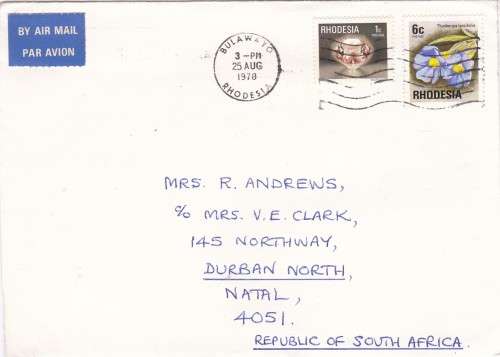 BY AIR MAIL
PAR AVION
BULAWAYO
3 - PM
25 AUG
1978
RHODESIA
RHODESIA 1c
6c
RHODESIA
MRS. R. ANDREWS,
c/o MRS. V. E. CLARK,
145 NORTHWAY,
DURBAN NORTH,
NATAL,
4051.
REPUBLIC OF SOUTH AFRICA.